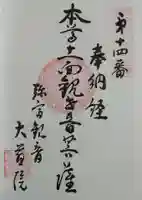 第十四番
奉納経
本尊十一面観世音菩薩
弥富観音
大菩院